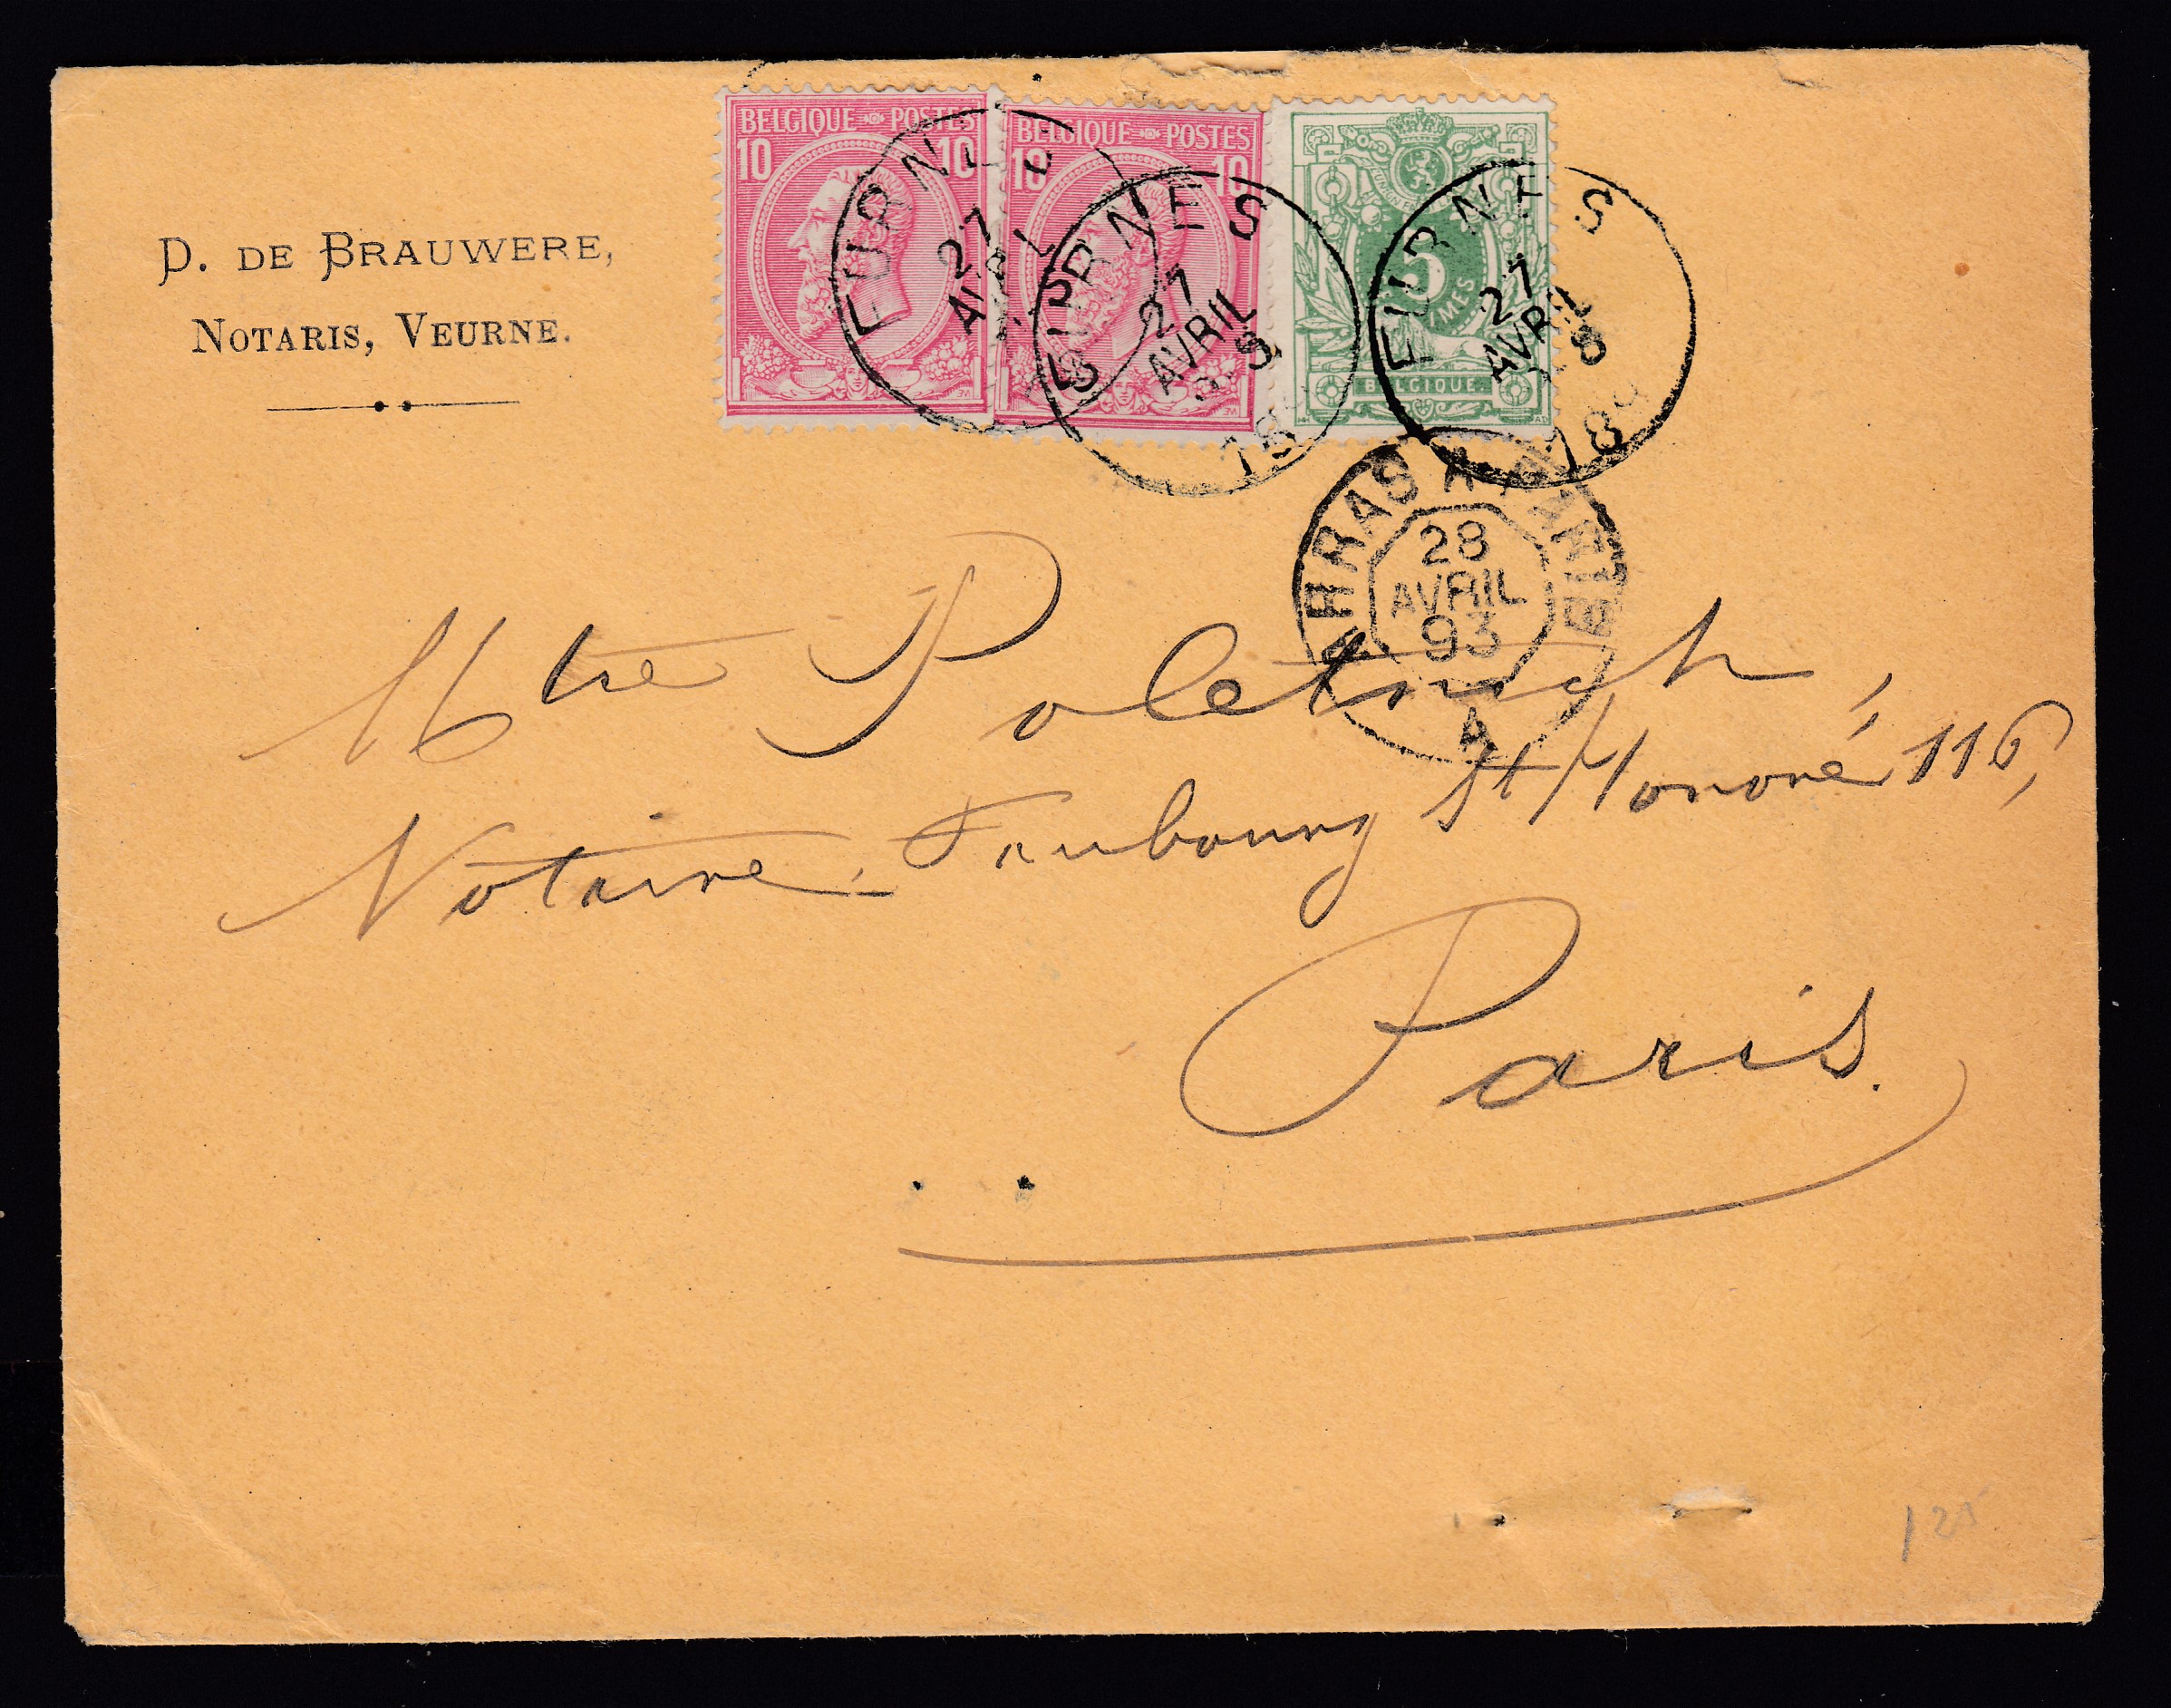 D. DE BRAUWERE,
NOTARIS, VEURNE.
BELGIQUE POSTES
10 10
BELGIQUE POSTES
10 10
5
BELGIQUE
FURNES
27
AVRIL
FURNES
27
AVRIL
8-S
18
FURNES
27
AVRIL
8
189
ARRAS
28
AVRIL
93
A
Mtre
Notaire, Faubourg St Honoré, 116,
Paris.
125